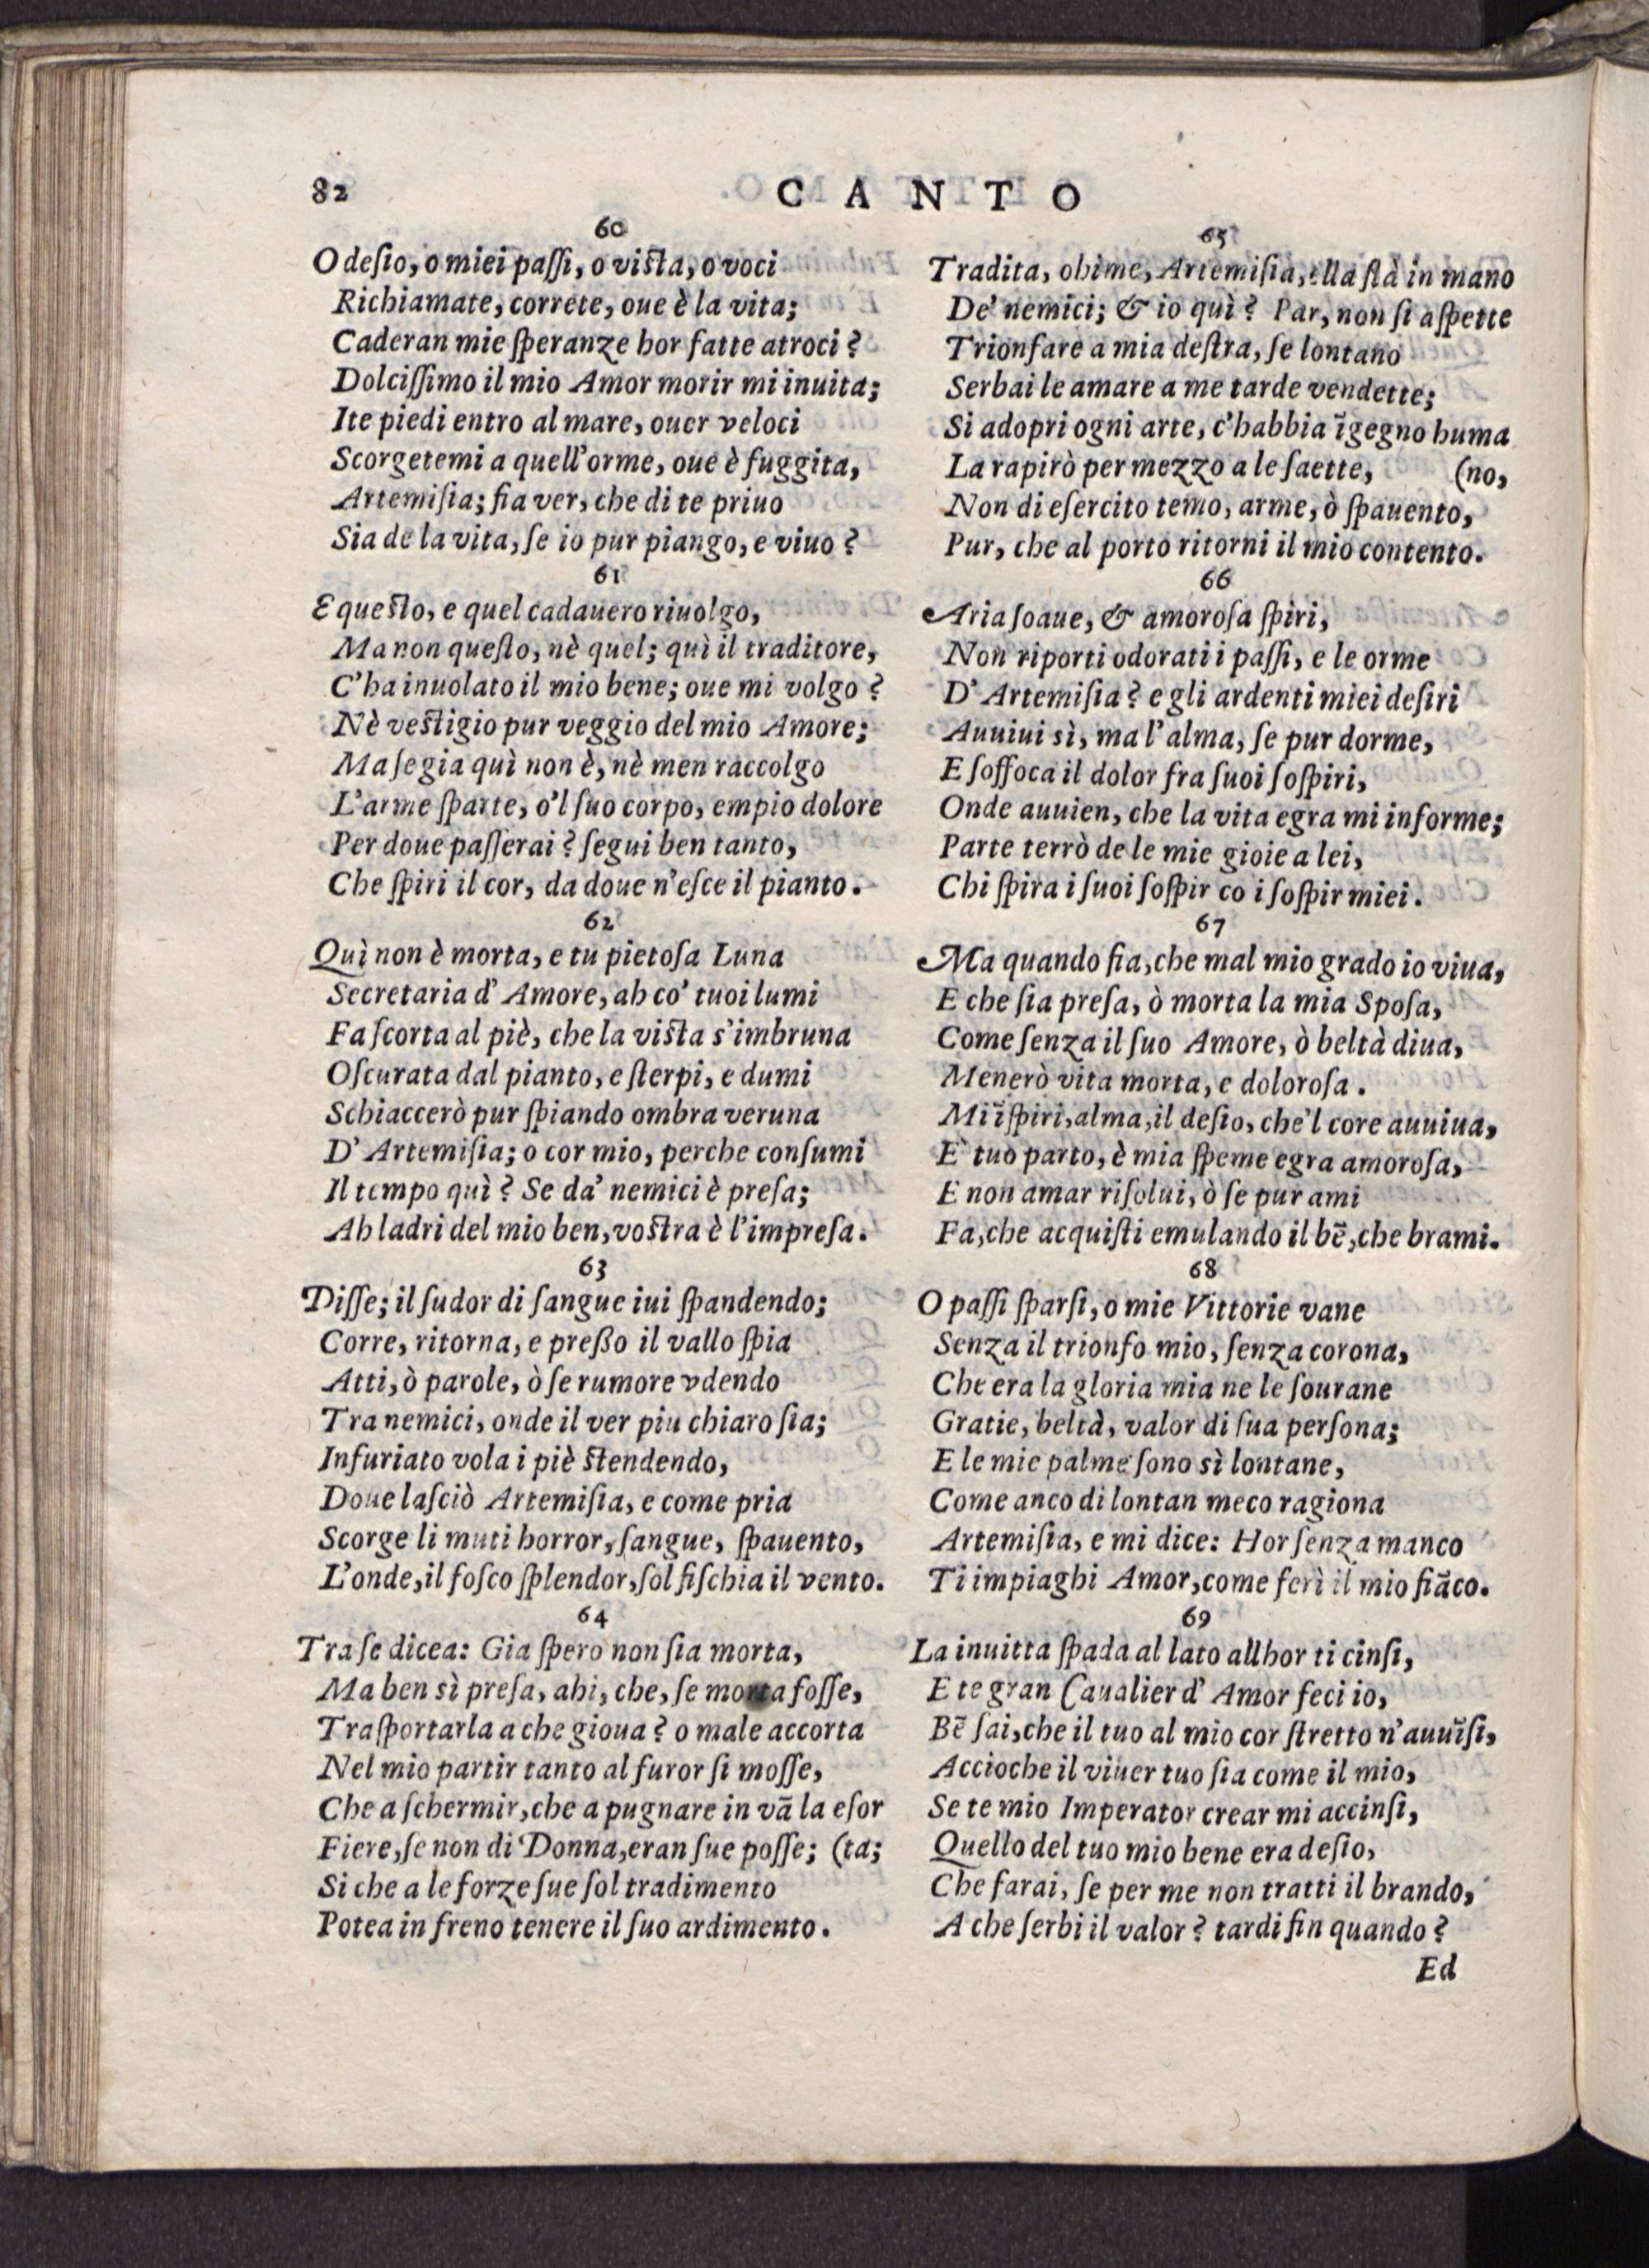 82
CANTO
60
O deſio, o miei paſſi, o viſta, o voci
Richiamate, correte, oue è la vita;
Caderan mie ſperanze hor fatte atroci?
Dolciſſimo il mio Amor morir mi inuita;
Ite piedi entro al mare, ouer veloci
Scorgetemi a quell'orme, oue è fuggita,
Artemiſia; fia ver, che di te priuo
Sia de la vita, ſe io pur piango, e viuo?
61
E queſto, e quel cadauero riuolgo,
Ma non queſto, nè quel; quì il traditore,
C'ha inuolato il mio bene; oue mi volgo?
Nè veſtigio pur veggio del mio Amore;
Ma ſe gia quì non è, nè men raccolgo
L'arme ſparte, o'l ſuo corpo, empio dolore
Per doue paſſerai? ſegui ben tanto,
Che ſpiri il cor, da doue n'eſce il pianto.
62
Quì non è morta, e tu pietoſa Luna
Secretaria d'Amore, ah co' tuoi lumi
Fa ſcorta al piè, che la viſta s'imbruna
Oſcurata dal pianto, e ſterpi, e dumi
Schiaccerò pur ſpiando ombra veruna
D'Artemiſia; o cor mio, perche conſumi
Il tempo quì? Se da' nemici è preſa;
Ah ladri del mio ben, voſtra è l'impreſa.
63
Diſſe; il ſudor di ſangue iui ſpandendo;
Corre, ritorna, e preßo il vallo ſpia
Atti, ò parole, ò ſe rumore vdendo
Tra nemici, onde il ver piu chiaro ſia;
Infuriato vola i piè ſtendendo,
Doue laſciò Artemiſia, e come pria
Scorge li muti horror, ſangue, ſpauento,
L'onde, il foſco ſplendor, ſol fiſchia il vento.
64
Tra ſe dicea: Gia ſpero non ſia morta,
Ma ben sì preſa, ahi, che, ſe morta foſſe,
Traſportarla a che gioua? o male accorta
Nel mio partir tanto al furor ſi moſſe,
Che a ſchermir, che a pugnare in vā la eſor
Fiere, ſe non di Donna, eran ſue poſſe; (ta;
Si che a le forze ſue ſol tradimento
Potea in freno tenere il ſuo ardimento.
65
Tradita, ohime, Artemiſia, ella ſtà in mano
De' nemici; & io quì? Par, non ſi aſpette
Trionfare a mia deſtra, ſe lontano
Serbai le amare a me tarde vendette;
Si adopri ogni arte, c'habbia īgegno huma
La rapirò per mezzo a le ſaette, (no,
Non di eſercito temo, arme, ò ſpauento,
Pur, che al porto ritorni il mio contento.
66
Aria ſoaue, & amoroſa ſpiri,
Non riporti odorati i paſſi, e le orme
D'Artemiſia? e gli ardenti miei deſiri
Auuiui sì, ma l'alma, ſe pur dorme,
E ſoffoca il dolor fra ſuoi ſoſpiri,
Onde auuien, che la vita egra mi informe;
Parte terrò de le mie gioie a lei,
Chi ſpira i ſuoi ſoſpir co i ſoſpir miei.
67
Ma quando fia, che mal mio grado io viua,
E che ſia preſa, ò morta la mia Spoſa,
Come ſenza il ſuo Amore, ò beltà diua,
Menerò vita morta, e doloroſa.
Mi īſpiri, alma, il deſio, che'l core auuiua,
È tuo parto, è mia ſpeme egra amoroſa,
E non amar riſolui, ò ſe pur ami
Fa, che acquiſti emulando il bē, che brami.
68
O paſſi ſparſi, o mie Vittorie vane
Senza il trionfo mio, ſenza corona,
Che era la gloria mia ne le ſourane
Gratie, beltà, valor di ſua perſona;
E le mie palme ſono sì lontane,
Come anco di lontan meco ragiona
Artemiſia, e mi dice: Hor ſenza manco
Ti impiaghi Amor, come ferì il mio fiāco.
69
La inuitta ſpada al lato allhor ti cinſi,
E te gran Caualier d'Amor feci io,
Bē ſai, che il tuo al mio cor ſtretto n'auuīſi,
Accioche il viuer tuo ſia come il mio,
Se te mio Imperator crear mi accinſi,
Quello del tuo mio bene era deſio,
Che farai, ſe per me non tratti il brando,
A che ſerbi il valor? tardi fin quando?
Ed